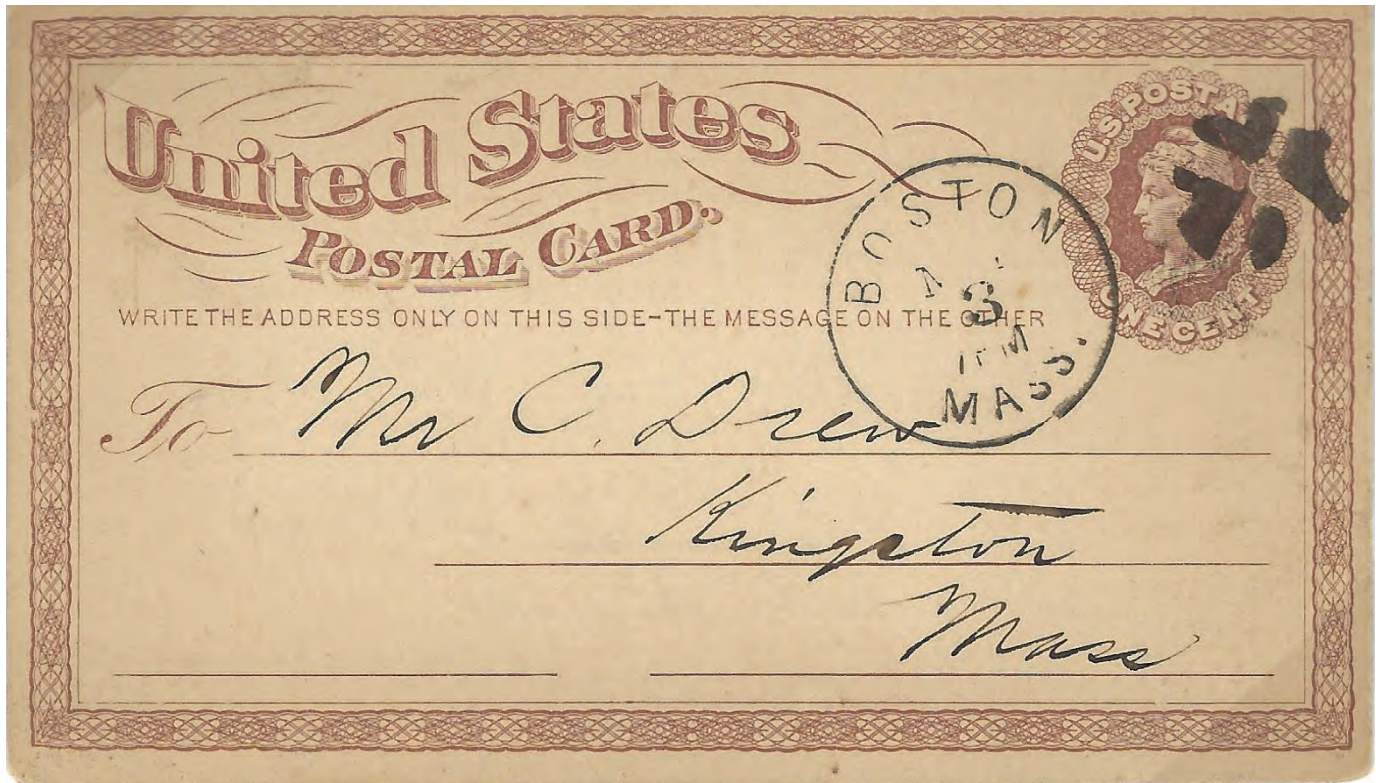 United States
POSTAL CARD.
U.S. POSTA
ONE CENT
WRITE THE ADDRESS ONLY ON THIS SIDE-THE MESSAGE ON THE OTHER
BOSTON
MASS.
To Mr C. Drew
Kingston
Mass